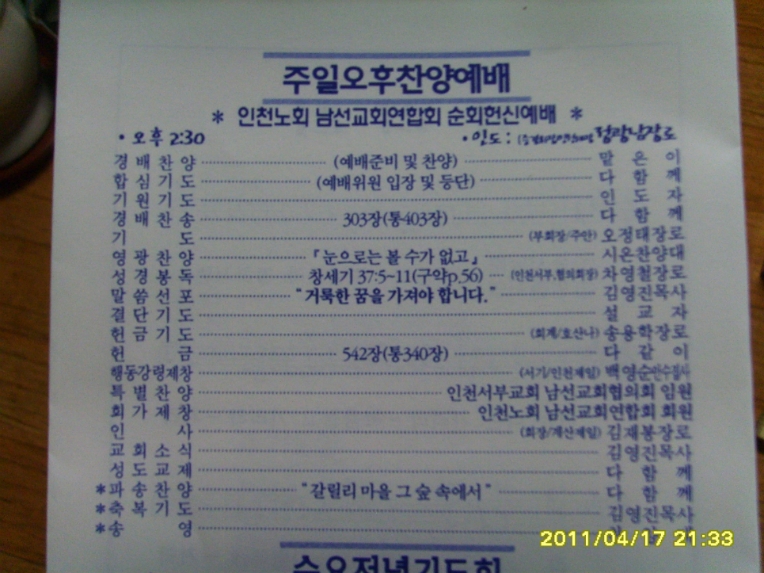 주일오후찬양예배
* 인천노회 남선교회연합회 순회헌신예배 *
• 오후 2:30 • 인도: 장로
경배찬양 (예배준비 및 찬양) 맡은이
합심기도 (예배위원 입장 및 등단) 다함께
기원기도 인도자
경배찬송 303장(통403장) 다함께
기도 (부회장/주안) 오정태장로
영광찬양 『눈으로는 볼 수가 없고』 시온찬양대
성경봉독 창세기 37:5~11(구약p.56) (인천서부,협의회장) 차영철장로
말씀선포 "거룩한 꿈을 가져야 합니다." 김영진목사
결단기도 설교자
헌금기도 (회계/호산나) 송용학장로
헌금 542장(통340장) 다같이
행동강령제창 (서기/인천제일) 백영순안수집사
특별찬양 인천서부교회 남선교회협의회 임원
회가제창 인천노회 남선교회연합회 회원
인사 (회장/계산제일) 김재봉장로
교회소식 김영진목사
성도교제 다함께
*파송찬양 "갈릴리 마을 그 숲 속에서" 다함께
*축복기도 김영진목사
*송영
수요저녁기도회
2011/04/17 21:33